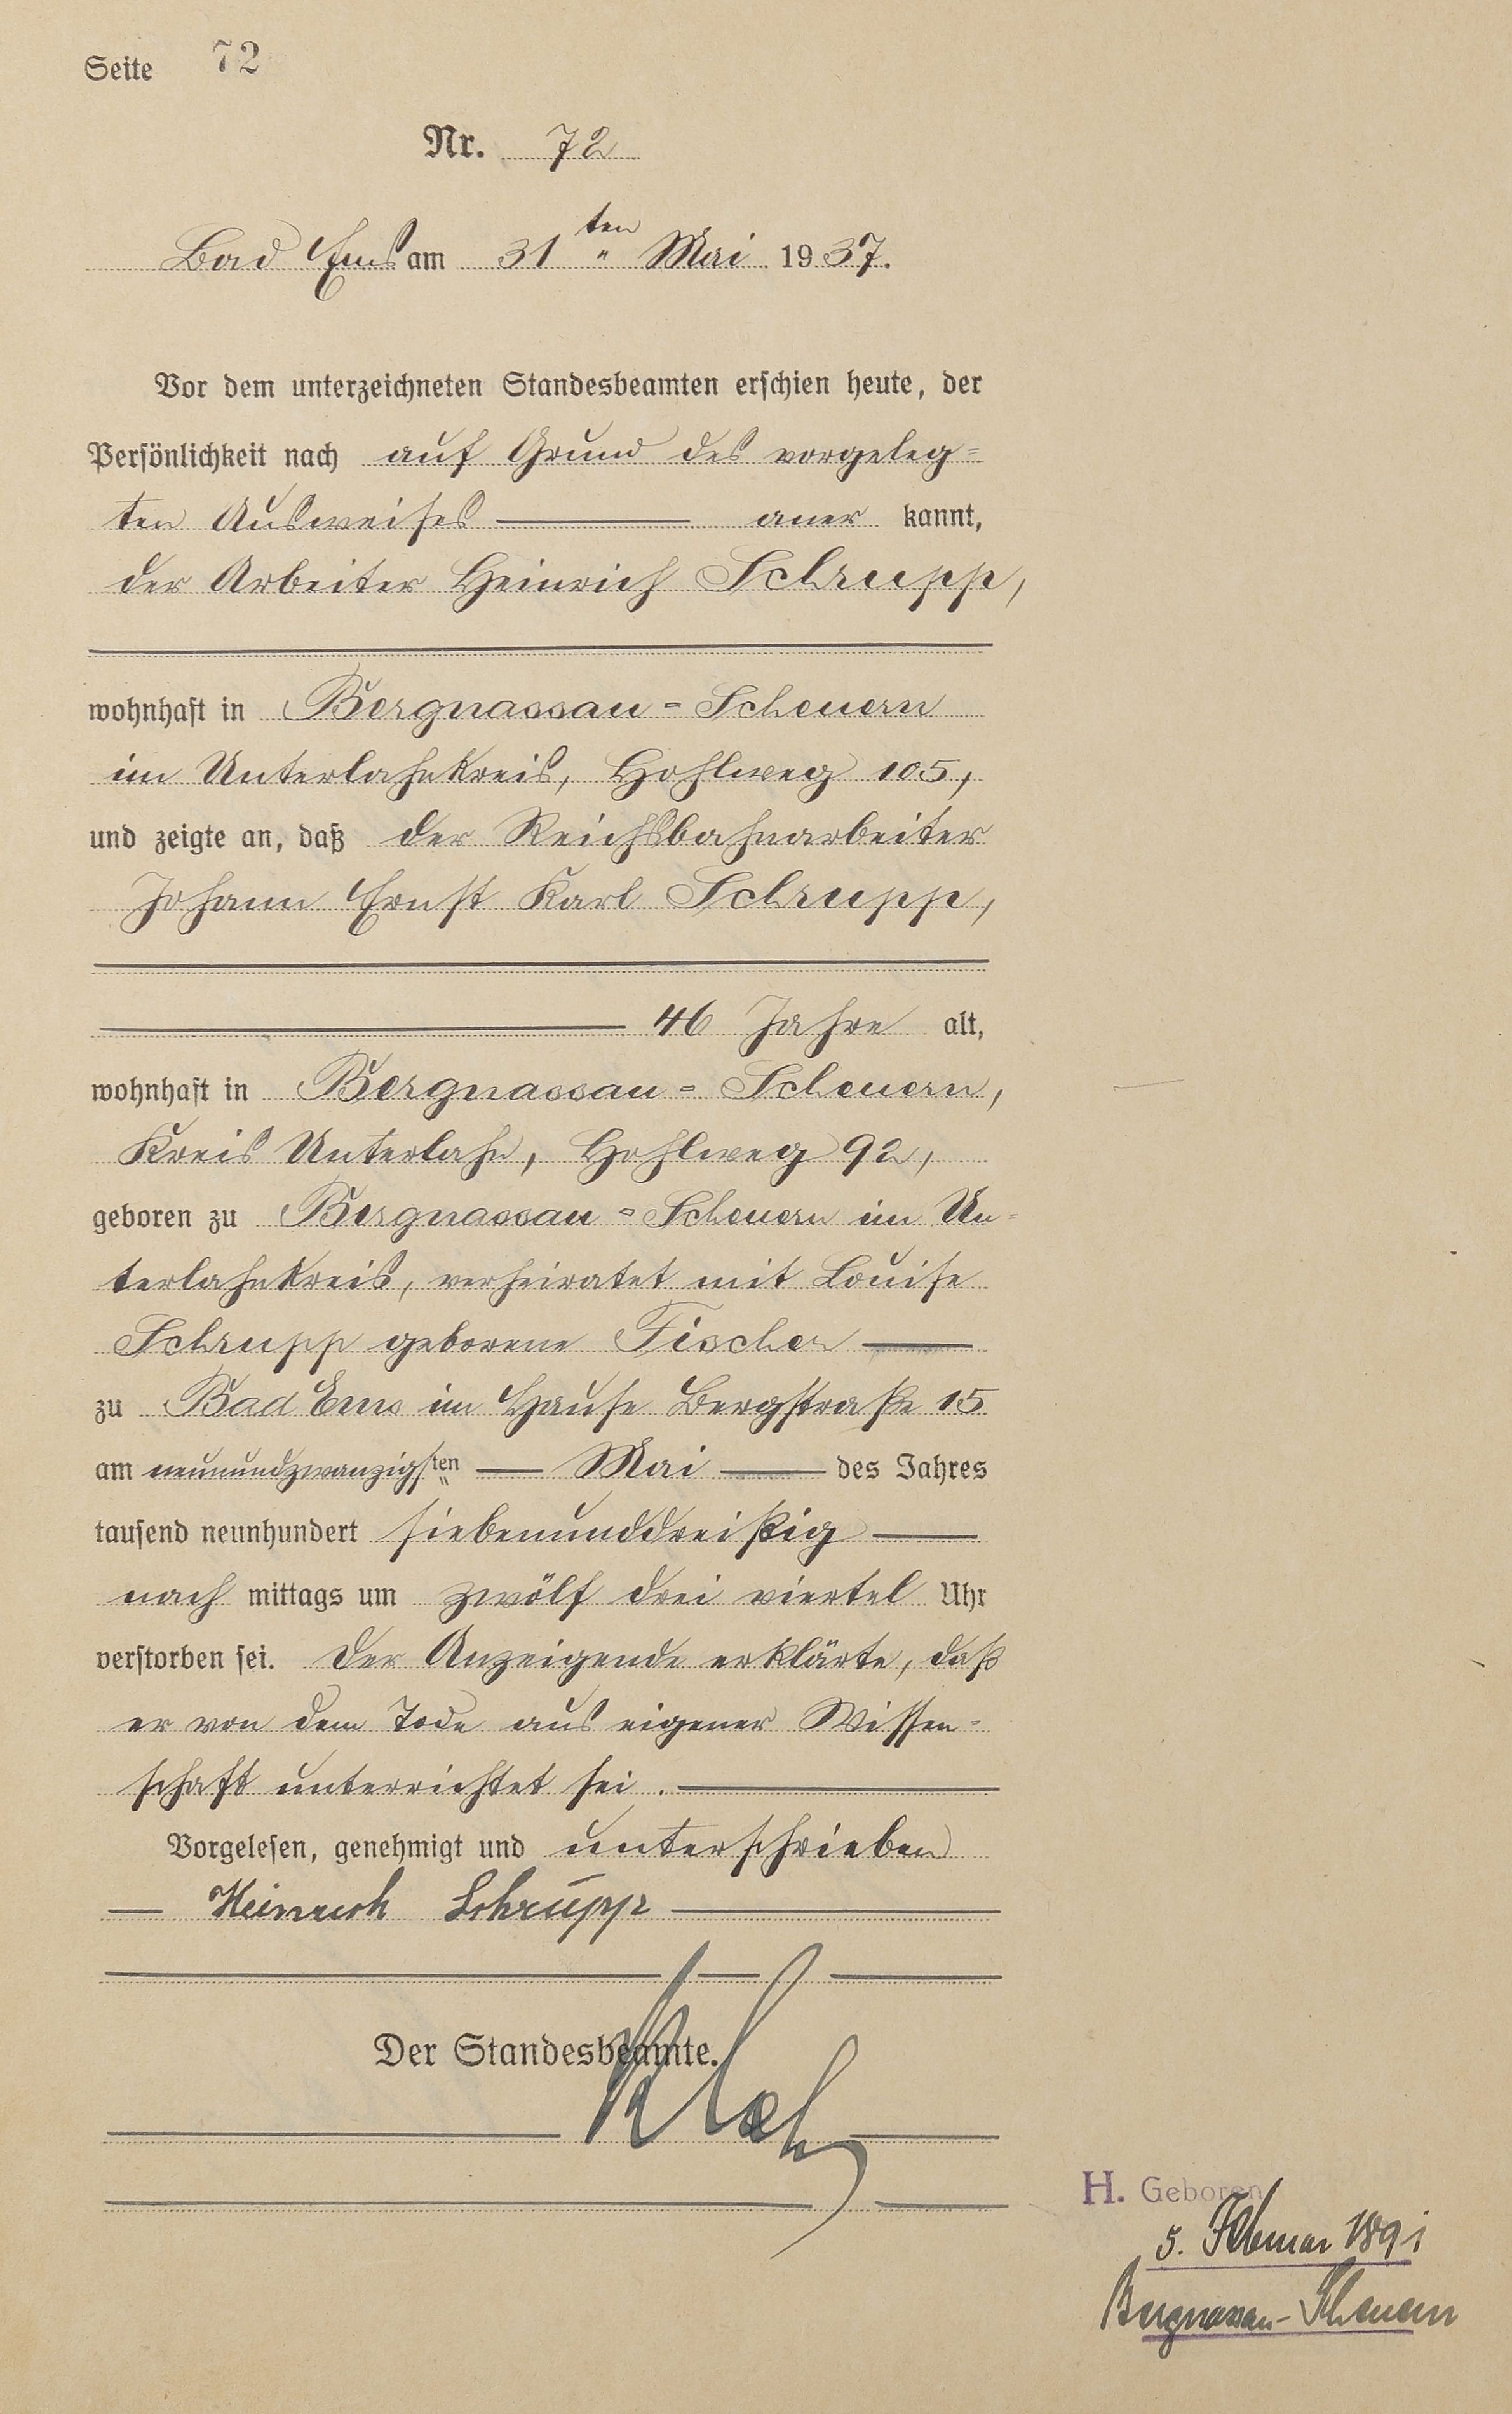 Seite 72
Nr. 72
Bad Ems am 31ten Mai 1937.
Vor dem unterzeichneten Standesbeamten erschien heute, der
Persönlichkeit nach auf Grund des vorgeleg=
ten Ausweises aner kannt,
der Arbeiter Heinrich Schrupp,
wohnhaft in Bergnassau=Scheuern
im Unterlahnkreis, Hohlweg 105,
und zeigte an, daß der Reichsbahnarbeiter
Johann Ernst Karl Schrupp,
46 Jahre alt,
wohnhaft in Bergnassau=Scheuern,
Kreis Unterlahn, Hohlweg 92,
geboren zu Bergnassau=Scheuern im Un=
terlahnkreis, verheiratet mit Louise
Schrupp geborene Fischer
zu Bad Ems im Hause Bergstraße 15
am neunundzwanzigsten Mai des Jahres
tausend neunhundert siebenunddreißig
nach mittags um zwölf drei viertel Uhr
verstorben sei. Der Anzeigende erklärte, daß
er von dem Tode aus eigener Wissen=
schaft unterrichtet sei.
Vorgelesen, genehmigt und unterschrieben
Heinrich Schrupp
Der Standesbeamte.
H. Geboren
5. Februar 1891
Bergnassau-Scheuern